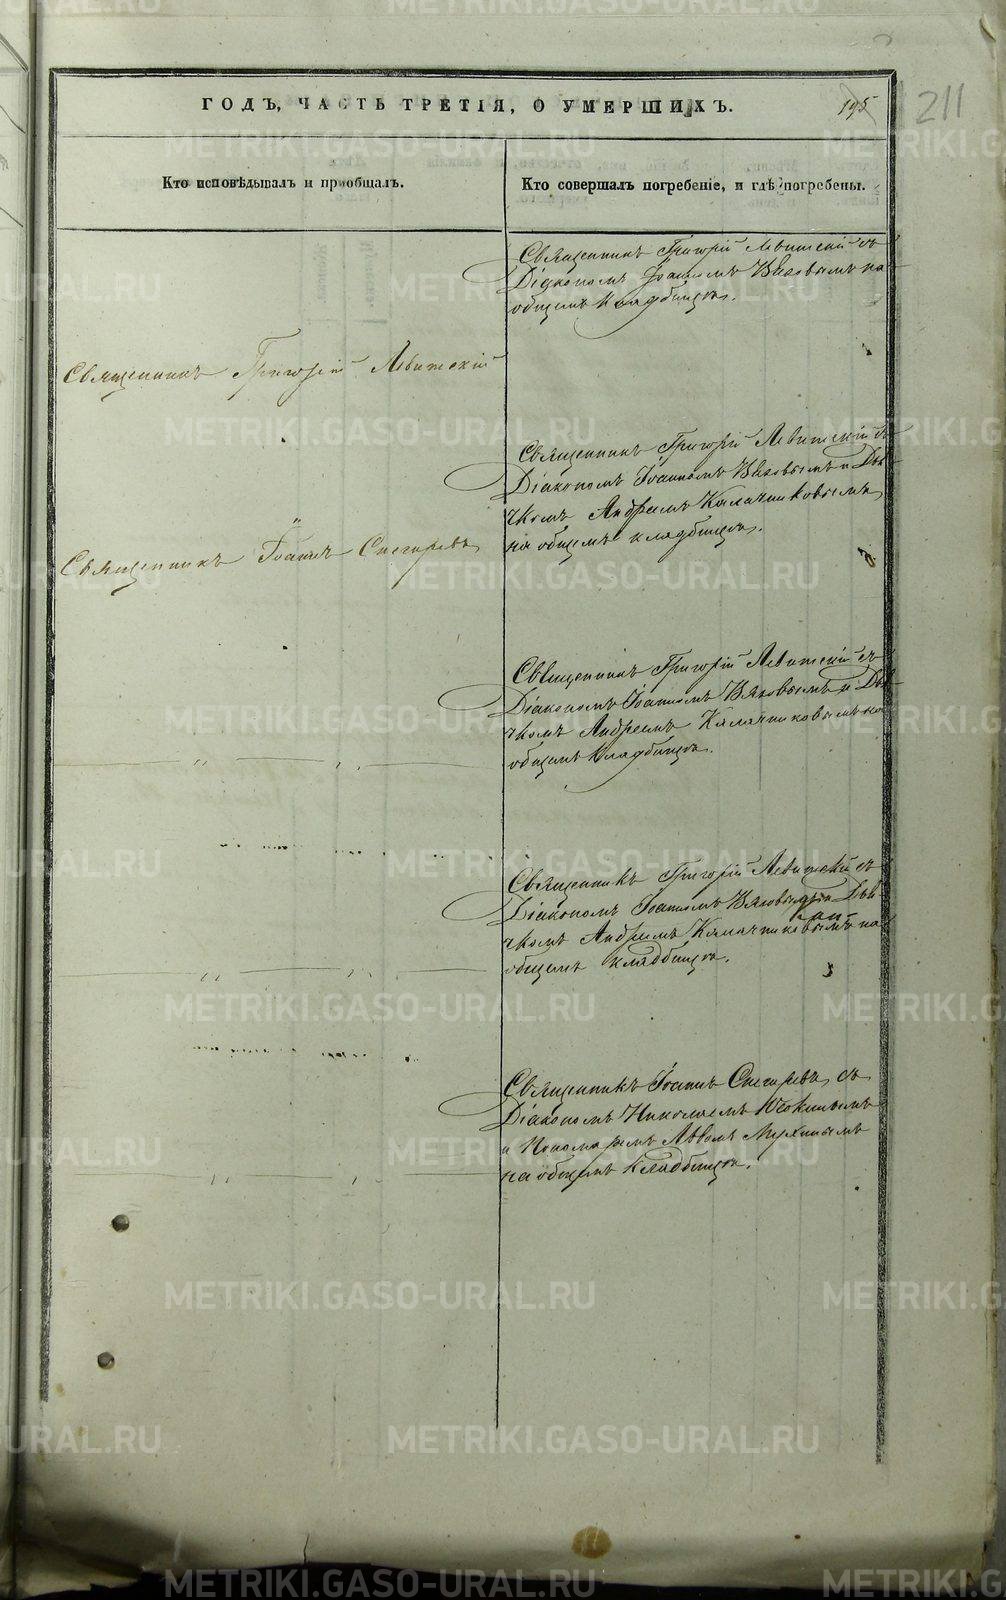 ГОДЪ, ЧАСТЬ ТРЕТІЯ, О УМЕРШИХЪ.
195
211
Кто исповѣдывалъ и пріобщалъ.
Кто совершалъ погребеніе, и гдѣ погребены.
Священникъ Григорій Левитскій съ
Діакономъ Іоанномъ на
общемъ кладбищѣ.
Священникъ Григорій Левитскій
Священникъ Григорій Левитскій съ
Діакономъ Іоанномъ и Дья
чкомъ Андреемъ Калачниковымъ
на общемъ кладбищѣ.
Священникъ Іоаннъ Снегиревъ
Священникъ Григорій Левитскій съ
Діакономъ Іоанномъ и Дья
чкомъ Андреемъ Калачниковымъ на
общемъ кладбищѣ.
Священникъ Григорій Левитскій съ
Діакономъ Іоанномъ Дья
чкомъ Андреемъ Калачниковымъ на
общемъ кладбищѣ.
Священникъ Іоаннъ Снегиревъ съ
Діакономъ Николаемъ
и Пономаремъ Львомъ
на общемъ кладбищѣ.
METRIKI.GASO-URAL.RU